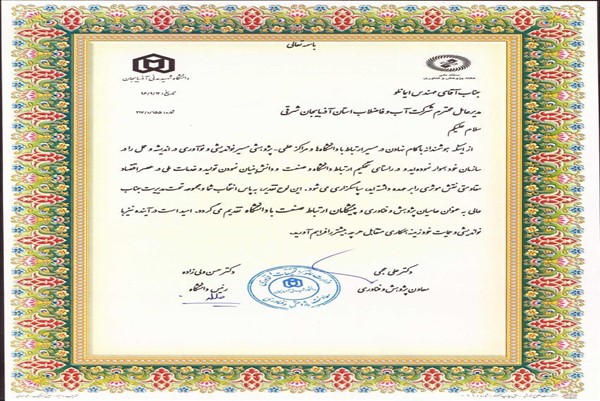 باسمه تعالی
ستاد ملی
هفته پژوهش و فناوری
دانشگاه شهید مدنی آذربایجان
تاریخ:
شماره:
جناب آقای مهندس ایمانلو
مدیرعامل محترم شرکت آب و فاضلاب استان آذربایجان شرقی
سلام علیکم
از اینکه هوشمندانه با گام نهادن در مسیر ارتباط با دانشگاه‌ها و مراکز علمی - پژوهشی مسیر نواندیشی و نوآوری در اندیشه و عمل را در
سازمان خود هموار نموده‌اید و در راستای تحکیم ارتباط دانشگاه و صنعت و دانش بنیان نمودن تولید و خدمات ملی در عصر اقتصاد
مقاومتی نقش موثری را بر عهده داشته‌اید، سپاسگزاری می شود. این لوح تقدیر، به پاس انتخاب شما و مجموعه تحت مدیریت جناب
عالی به عنوان حامیان پژوهش و فناوری و پیشگامان ارتباط صنعت با دانشگاه تقدیم می گردد. امید است در آینده نیز با
نواندیشی و حمایت خود زمینه همکاری متقابل هر چه بیشتر را فراهم آورید.
دکتر علی عجمی
معاون پژوهش و فناوری
دکتر حسن ولی زاده
رئیس دانشگاه